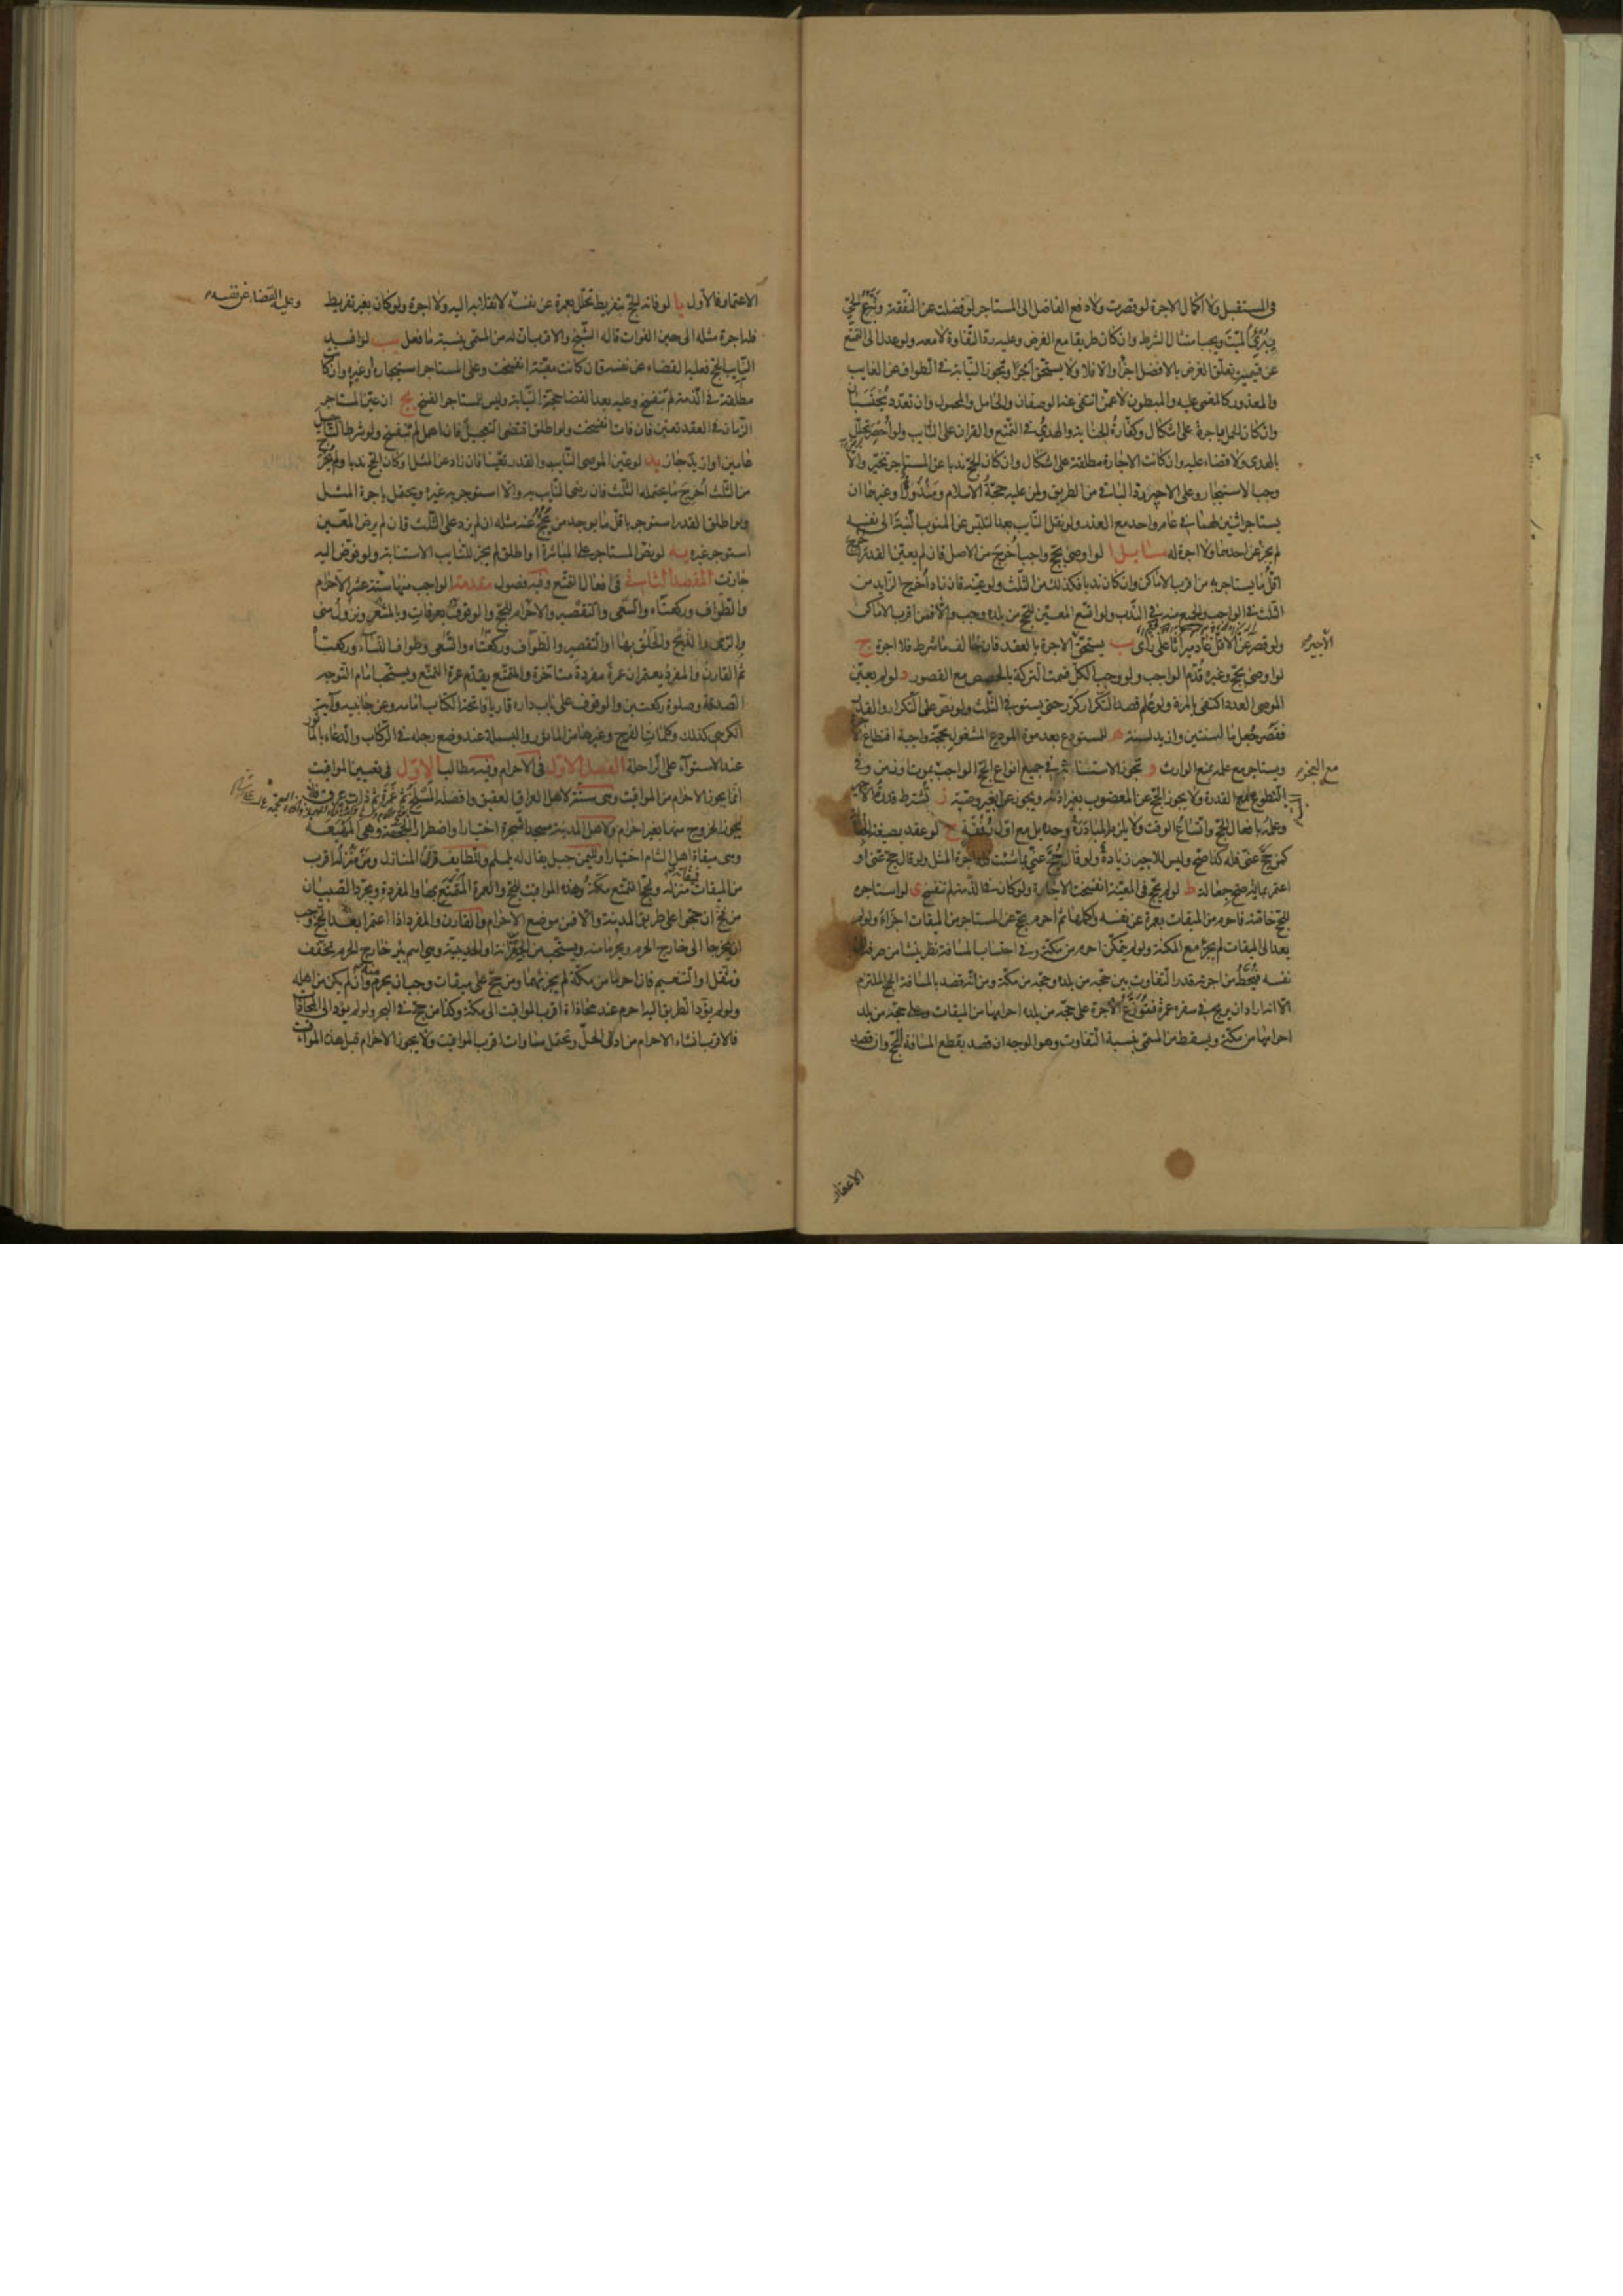 في المستقبل ولا اكمال الاجرة لو قصرت ولا دفع الفاضل الى المستاجر لو فضلت عن النفقة وتبرع الحي
يبرئ الميت ويجب امتثال الشرط وان كان طريقا مع الغرض وعليه رد التفاوة لا معه ولو عدل الى التمتع
عن قيميه وتعلق الغرض بالافضل اجزأ والا فلا ولا يستحق اجرا وتجوز النيابة في الطواف عن الغايب
والمعذور كالمغمى عليه والمبطون لا عمن انتفى عنه الوصفان والحامل والمحمول وان تعدد يحتسبان
وان كان الحمل باجرة على اشكال وكفارة الجناية والهدي في التمتع والقران على النايب ولو احصر تحلل
بالهدى ولا قضاء عليه وان كانت الاجارة مطلقة على اشكال وان كان الحج ندبا عن المستاجر تخير والا
وجب الاستيجار وعلى الاجير رد الباقي من الطريق ولمن عليه حجة الاسلام ومنذورة وغيرهما ان
يستاجر اثنين لهما في عام واحد مع العذر ولو نقل النايب بعد التلبس عن المنوب النية الى نفسه
لم يجز عن احدهما ولا اجرة له مسايل ا لو اوصى بحج واجب اخرج من الاصل فان لم يعين القدر اخرج
اقل ما يستاجر به من اقرب الاماكن وان كان ندبا فكذلك من الثلث ولو عينه فان زاد اخرج الزايد من
الثلث في الواجب والجميع منه في الندب ولو اتسع المعين للحج من بلده وجب والا فمن اقرب الاماكن
ولو قصر عن الاقل عاد ميراثا على راى ب يستحق الاجرة بالعقد فان خالف ما شرط فلا اجرة ج
الاجير
لو اوصى بحج وغيره قدم الواجب ولو وجب الكل قسمت التركة بالحصص مع القصور د لو لم يعين
الموصى العدد اكتفى بالمرة ولو علم قصد التكرار كرر حتى يستوفى الثلث ولو نص على التكرار والقدر
فقصر جعل ما لسنتين وازيد لسنة ه للمستودع بعد موة المودع المشغول بحجة واجبة اقتطاع
ويستاجر مع علمه بمنع الوارث و تجوز الاستنابة في جميع انواع الحج الواجب بموت او زمن وفي
مع العجز
التطوع مع القدرة ولا يجوز الحج عن المعضوب بغير اذنه ويجوز عن الغير وصية ز تشترط قدرة الاجير
وعلمه بافعال الحج واتساع الوقت ولا يلزم المبادرة وحده بل مع اول رفقة ح لو عقد بصيغة الجعالة
كمن حج عنى فله كذا صح وليس للاجير زيادة ولو قال حج عني بما شئت فله اجرة المثل ولو قال حج عنى او
اعتمر بماية صح جعالة ط لو لم يحج في المعينة انفسخت الاجارة ولو كان في الذمة لم تنفسخ ى لو استاجره
للحج خاصة فاحرم من الميقات بعمرة عن نفسه واكملها ثم احرم بحج عن المستاجر من الميقات اجزاه ولو لم
يعد الى الميقات لم يجزء مع المكنة ولو لم يتمكن احرم من مكة وفي احتساب المسافة نظر ينشا من صرفه الى
نفسه فيحط من اجرته قدر التفاوت بين حجه من بلده وحجه من مكة ومن انه قصد بالمسافة الحج الملتزم
الا انه اراد ان يربح في سفره عمرة فتوزع الاجرة على حجة من بلده احرامها من الميقات وعلى حجة من بلد
احرامها من مكة ويسقط من المسمى بنسبة التفاوت وهو الوجه ان قصد بقطع المسافة الحج وان قصد
الاعتمار
الاعتمار فالاول يا لو فاته الحج بتفريط تحلل بعمرة عن نفسه لانقلابه اليه ولا اجرة ولو كان بغير تفريط
وعليه القضاء عن نفسه
فله اجرة مثله الى حين الفوات قاله الشيخ والاقرب ان له من المسمى بنسبة ما فعل يب لو افسد
النايب الحج فعليه القضاء عن نفسه فان كانت معينة انفسخت وعلى المستاجر استيجاره او غيره وان كا
مطلقة في الذمة لم تنفسخ وعليه بعد القضا حجة النيابة وليس للمستاجر الفسخ يج ان عين المستاجر
الزمان في العقد تعين فان فات انفسخت ولو اطلق اقتضى التعجيل فان اهمل لم تنفسخ ولو شرط التاجيل
عامين او ازيد جاز يد لو عين الموصى النايب والقدر تعينا فان زاد عن المثل وكان الحج ندبا ولم يخرج
من الثلث اخرج ما يحتمله الثلث فان رضى النايب به والا استوجر به غيره ويحتمل باجرة المثل
ولو اطلق القدر استوجر باقل ما يوجد من يحج عنه مثله ان لم يزد على الثلث فان لم يرض المعين
استوجر غيره يه لو نص المستاجر على المباشرة او اطلق لم يجز للنايب الاستنابة ولو فوض اليه
جازت المقصد الثاني في افعال التمتع وفيه فصول مقدمة الواجب منها ستة عشر الاحرام
والطواف وركعتاه والسعى والتقصير والاحرام للحج والوقوف بعرفات وبالمشعر ونزول منى
والرمى والذبح والحلق بها او التقصير والطواف وركعتاه والسعى وطواف النساء وركعتا
ثم القارن والمفرد يعتمران عمرة مفردة متاخرة والمتمتع يقدم عمرة التمتع ويستحب امام التوجه
الصدقة وصلوة ركعتين والوقوف على باب داره قاريا فاتحة الكتاب امامه وعن جانبيه وآية
الكرسى كذلك وكلمات الفرج وغيرها من الماثور والبسملة عند وضع رجله في الركاب والدعاء بالماثور
عند الاستوآء على الراحلة الفصل الاول في الاحرام وفيه مطالب الاول في تعيين المواقيت
انما يجوز الاحرام من المواقيت وهى ستة لاهل العراق العقيق وافضله المسلخ ثم غمرة ثم ذات عرق فلا
يجوز الخروج منها بغير احرام ولاهل المدينة مسجد الشجرة اختيارا واضطرارا الجحفة وهى المهيعة
وهى ميقاة اهل الشام اختيارا ولليمن جبل يقال له يلملم وللطايف قرن المنازل ومن منزله اقرب
من الميقات منزله ولحج التمتع مكة وهذه المواقيت للحج والعمرة المتمتع بها والمفردة ويجرد الصبيان
من فخ ان حجوا على طريق المدينة والا فمن موضع الاحرام والقارن والمفرد اذا اعتمرا بعد الحج وجب
ان يخرجا الى خارج الحرم ويحرما منه ويستحب من الجعرانة او الحديبية وهى اسم بئر خارج الحرم تخفف
وتثقل او التنعيم فان احرما من مكة لم يجزئهما ومن حج على ميقات وجب ان يحرم منه وان لم يكن من اهله
ولو لم يؤد الطريق اليه احرم عند محاذاة اقرب المواقيت الى مكة وكذا من حج في البحر ولو لم يؤد الى المحاذاة
فالاقرب انشاء الاحرام من ادنى الحل ويحتمل مساوات اقرب المواقيت ولا يجوز الاحرام قبل هذه المواقيت